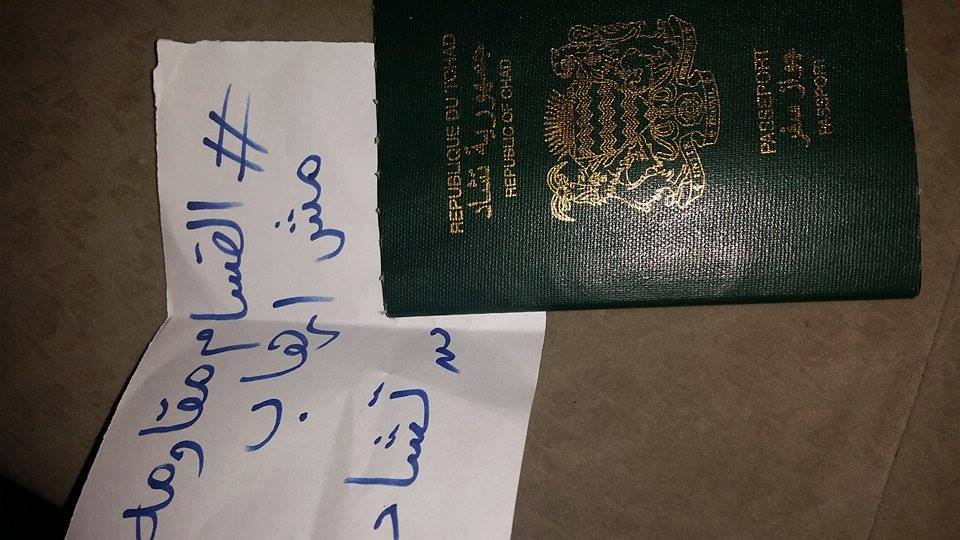 # القسام مقاومه
مش ارهاب
تشاد
REPUBLIQUE DU TCHAD
جمهورية تشاد
REPUBLIC OF CHAD
PASSEPORT
جواز سفر
PASSPORT